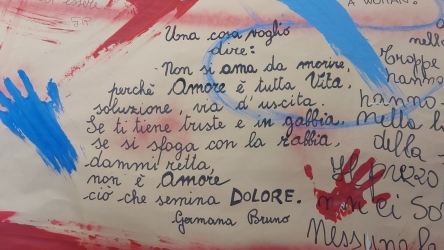 A WOMAN!
Una cosa voglio
dire:
Non si ama da morire,
perchè Amore è tutta Vita,
soluzione, via d'uscita.
Se ti tiene triste e in gabbia,
se si sfoga con la rabbia,
dammi retta,
non è Amore
ciò che semina DOLORE.
Germana Bruno
nello
Troppe
hanno
hanno
nella b
della
Il prezzo
ei so
Nessun